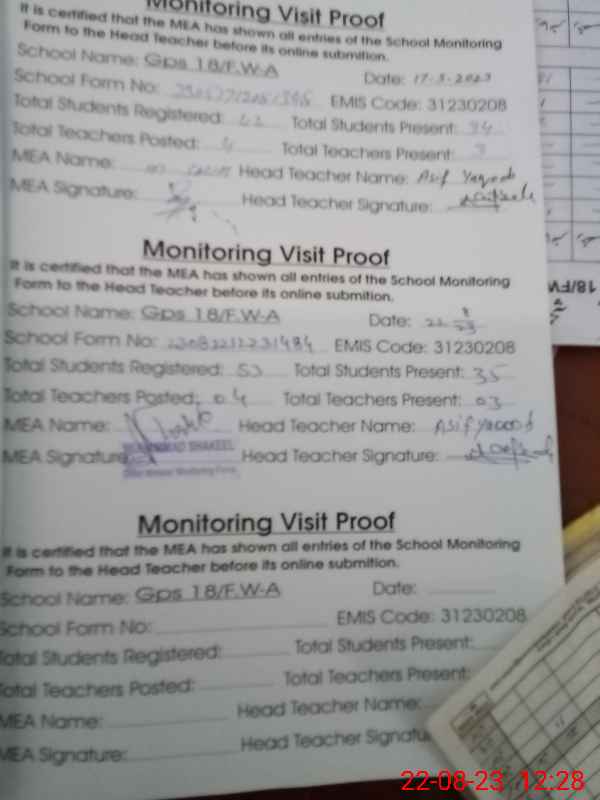 Monitoring Visit Proof
It is certified that the MEA has shown all entries of the School Monitoring
Form to the Head Teacher before its online submition.
School Name: Gps 18/F.W-A Date: 17-5-2023
School Form No: EMIS Code: 31230208
Total Students Registered: Total Students Present: 34
Total Teachers Posted: 4 Total Teachers Present: 3
MEA Name: Head Teacher Name: Asif Yaqoob
MEA Signature: Head Teacher Signature:
Monitoring Visit Proof
It is certified that the MEA has shown all entries of the School Monitoring
Form to the Head Teacher before its online submition.
School Name: Gps 18/F.W-A Date: 22-8-23
School Form No: EMIS Code: 31230208
Total Students Registered: 53 Total Students Present: 35
Total Teachers Posted: 04 Total Teachers Present: 03
MEA Name: Head Teacher Name: Asif yaqoob
MUHAMMAD SHAKEEL
MEA Signature Head Teacher Signature:
Monitoring Visit Proof
It is certified that the MEA has shown all entries of the School Monitoring
Form to the Head Teacher before its online submition.
School Name: Gps 18/F.W-A Date:
School Form No: EMIS Code: 31230208
Total Students Registered: Total Students Present:
Total Teachers Posted: Total Teachers Present:
MEA Name: Head Teacher Name:
MEA Signature: Head Teacher Signatu
18/FW
22-08-23 12:28